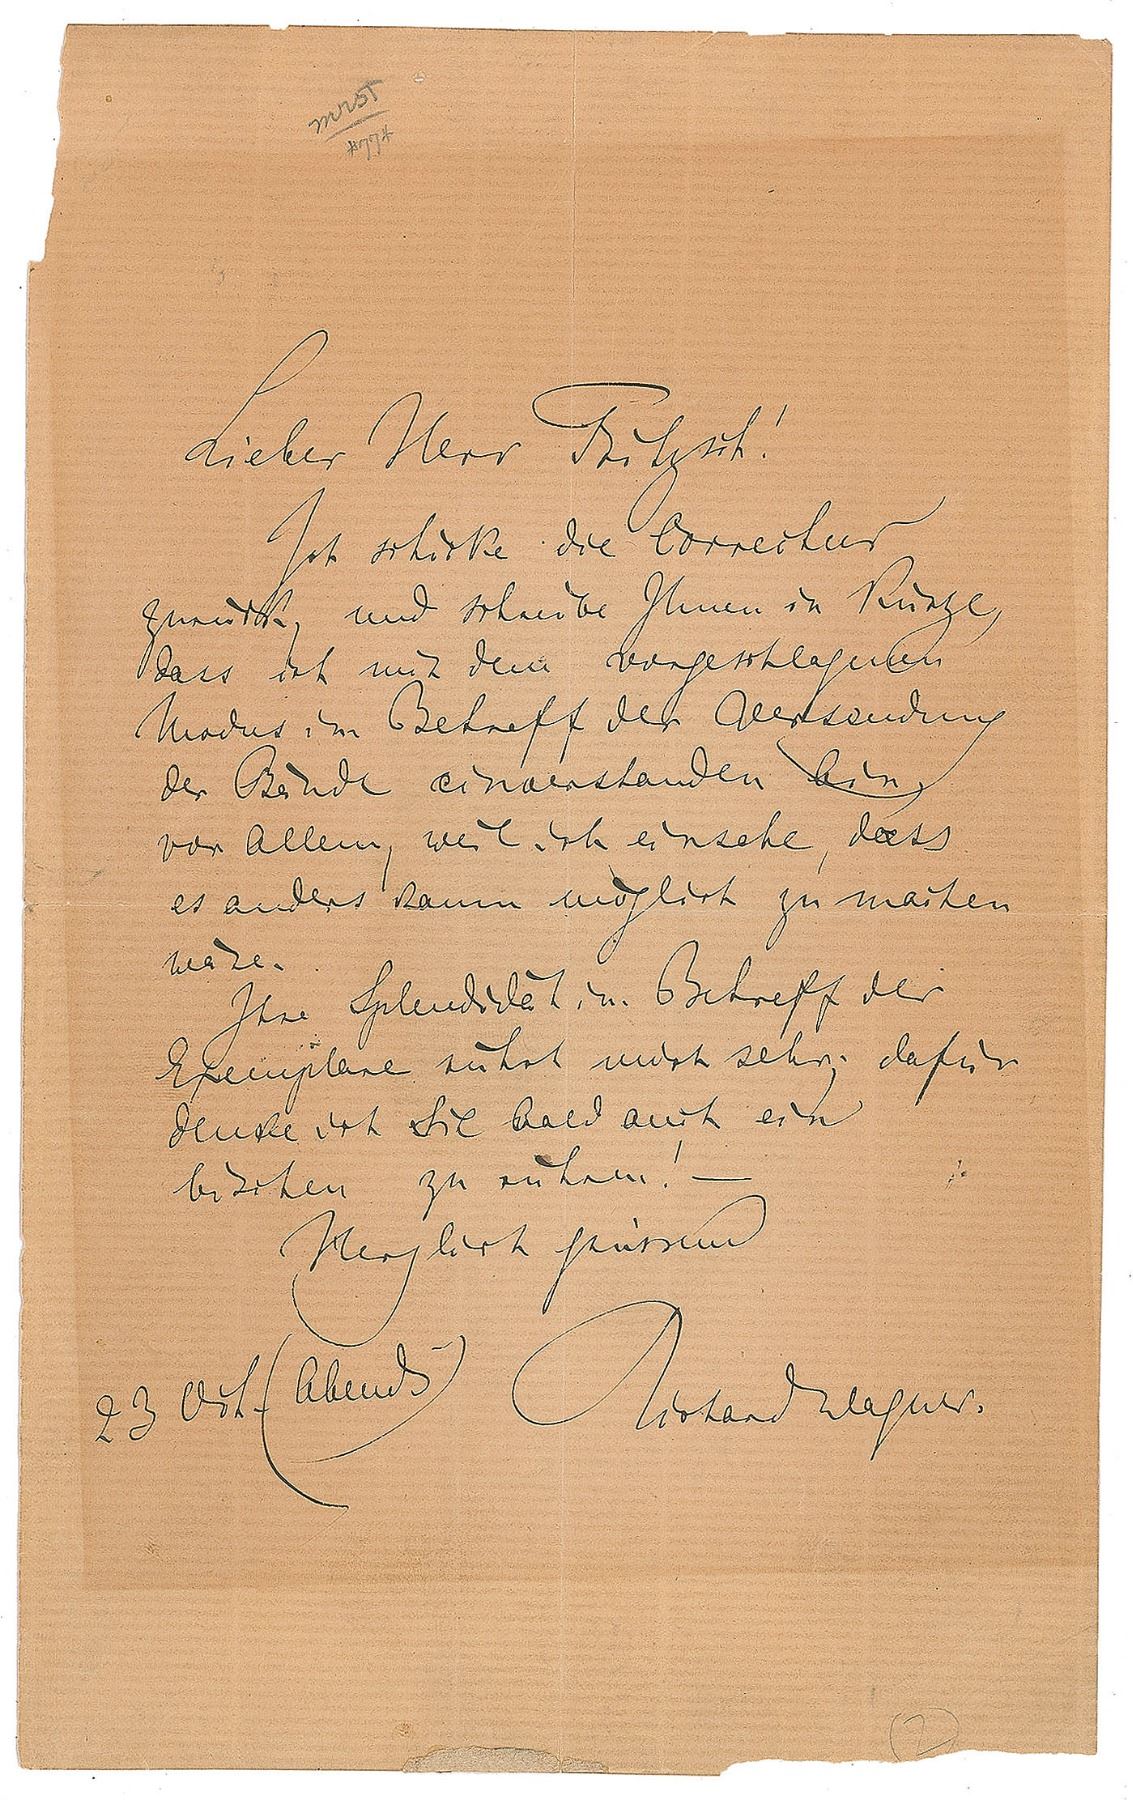 Lieber Herr Fritzsch!
Ich schicke die Correctur
zurück, und schreibe Ihnen in Kürze,
dass ich mit dem vorgeschlagenen
Modus im Betreff der Versendung
der Bände einverstanden bin,
vor Allem, weil ich einsehe, dass
es anders kaum möglich zu machen
wäre.
Ihre Splendidät im Betreff der
Exemplare rührt mich sehr; dafür
denke ich Sie bald auch ein
bischen zu rühren! —
Herzlich grüssend
Richard Wagner.
23 Oct. (Abends)